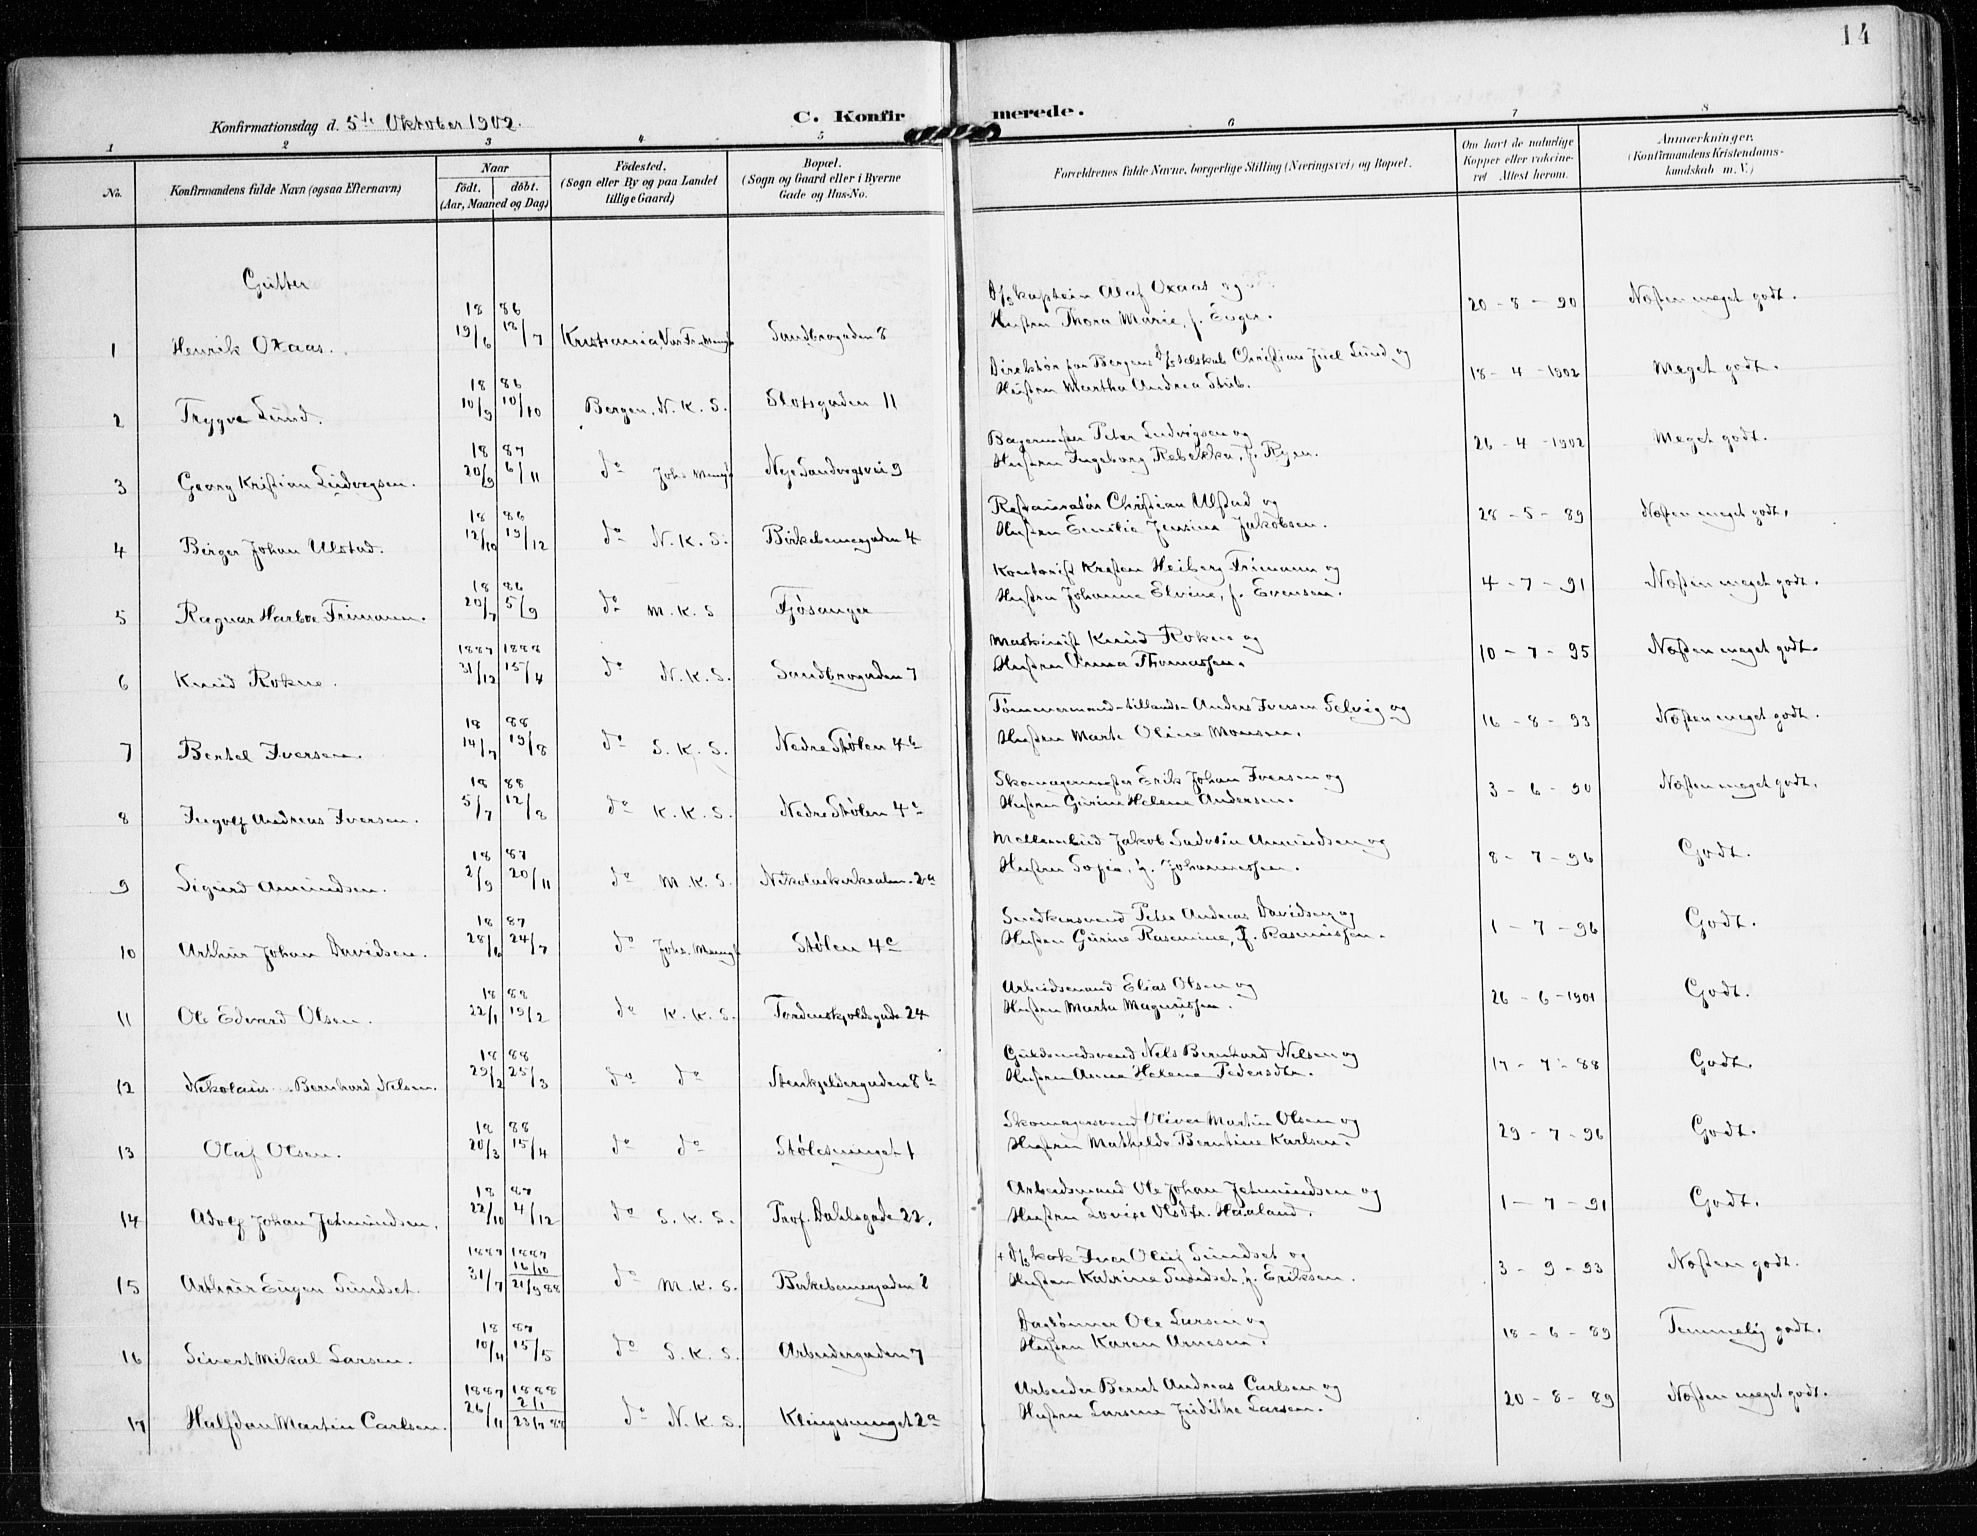 14
Konfirmationsdag d. 5te Oktober 1902.
C. Konfirmerede.
1 2 3 4 5 6 7 8
No.
Konfirmandens fulde Navn (ogsaa Efternavn)
Naar
født. døbt.
(Aar, Maaned og Dag)
Fødested.
(Sogn eller By og paa Landet
tillige Gaard)
Bopæl.
(Sogn og Gaard eller i Byerne
Gade og Hus-No.
Forældrenes fulde Navne, borgerlige Stilling (Næringsvei) og Bopæl.
Om havt de naturlige
Kopper eller vakcine-
ret Attest herom.
Anmærkninger.
(Konfirmandens Kristendoms-
kundskab m. V.)
Gutter
18 86 D/skaptein Olaf Oxaas og
1 Henrik Oxaas. 19/6 18/7 Kristiania, Vor Fr. Menigh. Sandbrogaden 8 Hustru Thora Marie, f. Enger. 20-8-90 Næsten meget godt.
18 86 Direktør for Bergens D/sselskab Christian Juel Lund og
2 Trygve Lund. 10/9 10/10 Bergen, N. K. S. Slotsgaden 11 Hustru Martha Andrea Stub. 18-4-1902 Meget godt.
18 87 Bagermester Peter Ludvigsen og
3 Georg Kristian Ludvigsen. 20/9 6/11 do Johs Menigh Nye Sandvigsvei 9 Hustru Ingeborg Rebekka, f. Ryen. 26-4-1902 Meget godt.
18 86 Restauratør Christian Ulstad og
4 Birger Johan Ulstad. 12/10 19/12 do N. K. S. Birkebeinergaden 4 Hustru Emilie Jensine Jakobsen. 28-5-89 Næsten meget godt.
18 86 Kontorist Kristen Heiberg Frimann og
5 Ragnar Harboe Frimann. 20/7 5/9 do M. K. S Fjøsanger Hustru Johanne Elvine, f. Evensen. 4-7-91 Næsten meget godt.
1887 1888 Maskinist Knud Rokne og
6 Knud Rokne. 31/12 15/4 do N. K. S. Sandbrogaden 7 Hustru Anna Thomassen. 10-7-95 Næsten meget godt.
18 88 Tømmermand-tillands- Anders Iversen Selvig og
7 Bertel Iversen. 14/7 19/8 do S. K. S. Nedre Stølen 4b Hustru Marte Oline Monsen. 16-8-93 Næsten meget godt.
18 88 Skomagermester Erik Johan Iversen og
8 Ingolf Andreas Iversen. 5/7 12/8 do K. K. S. Nedre Stølen 4c Hustru Gurine Helene Andersen. 3-6-90 Næsten meget godt.
18 87 Møllersbud Jakob Amundsen og
9 Sigurd Amundsen. 2/9 20/11 do M. K. S. Nikolaikirkealm. 2a Hustru Sofie, f. Johannessen. 8-7-96 Godt.
18 87 Snedkersvend Peter Andreas Davidsen og
10 Arthur Johan Davidsen. 28/6 24/7 do Johs. Menigh Stølen 4c Hustru Gurine Rasmine, f. Rasmussen. 1-7-96 Godt.
18 88 Arbeidsmand Elias Olsen og
11 Ole Edvard Olsen. 22/1 19/2 do K. K. S. Tordenskjoldsgade 24 Hustru Marta Magnussen. 26-6-1901 Godt.
18 88 Guldsmedsvend Nels Bernhard Nilsen og
12 Nikolais Bernhard Nilsen. 29/2 25/3 do do Stenkjeldergaden 8b Hustru Anne Helene Pedersdtr. 17-7-88 Godt.
18 88 Skomagersvend Oliver Martin Olsen og
13 Olaf Olsen. 20/3 15/4 do do Stølesmuget 1 Hustru Mathilde Berntine Karlsen. 29-7-96 Godt.
18 87 Arbeidsmand Ole Johan Jetmundsen og
14 Adolf Johan Jetmundsen. 22/10 4/12 do S. K. S. Prof. Dahlsgade 22. Hustru Lovise Olsdtr. Haaland. 1-7-91 Godt.
1887 1887 + D/skok Iver Oluf Sundset og
15 Arthur Eugen Sundset. 31/7 16/10 21/9 88 do M. K. S. Birkebeinergaden 2 Hustru Katrine Sundset, f. Eriksen. 3-9-93 Næsten godt.
18 87 Dagtønner Ole Larsen og
16 Sivert Mikal Larsen. 10/4 15/5 do S. K. S. Arbeidergaden 7 Hustru Karen Arnesen. 18-6-89 Temmelig godt.
1887 1888 Arbeider Bernt Andreas Carlsen og
17 Halfdan Martin Carlsen. 26/11 2/1 23/7 88 do N. K. S. Klingesmuget 2a Hustru Larsine Judithe Larsen. 20-8-89 Næsten meget godt.